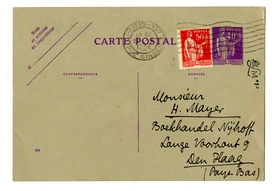 Nom
et adresse
de l'expéditeur
CARTE POSTALE
CORRESPONDANCE
ADRESSE
Monsieur
H. Mayer
Boekhandel Nijhoff
Lange Voorhout 9
Den Haag
(Pays Bas)